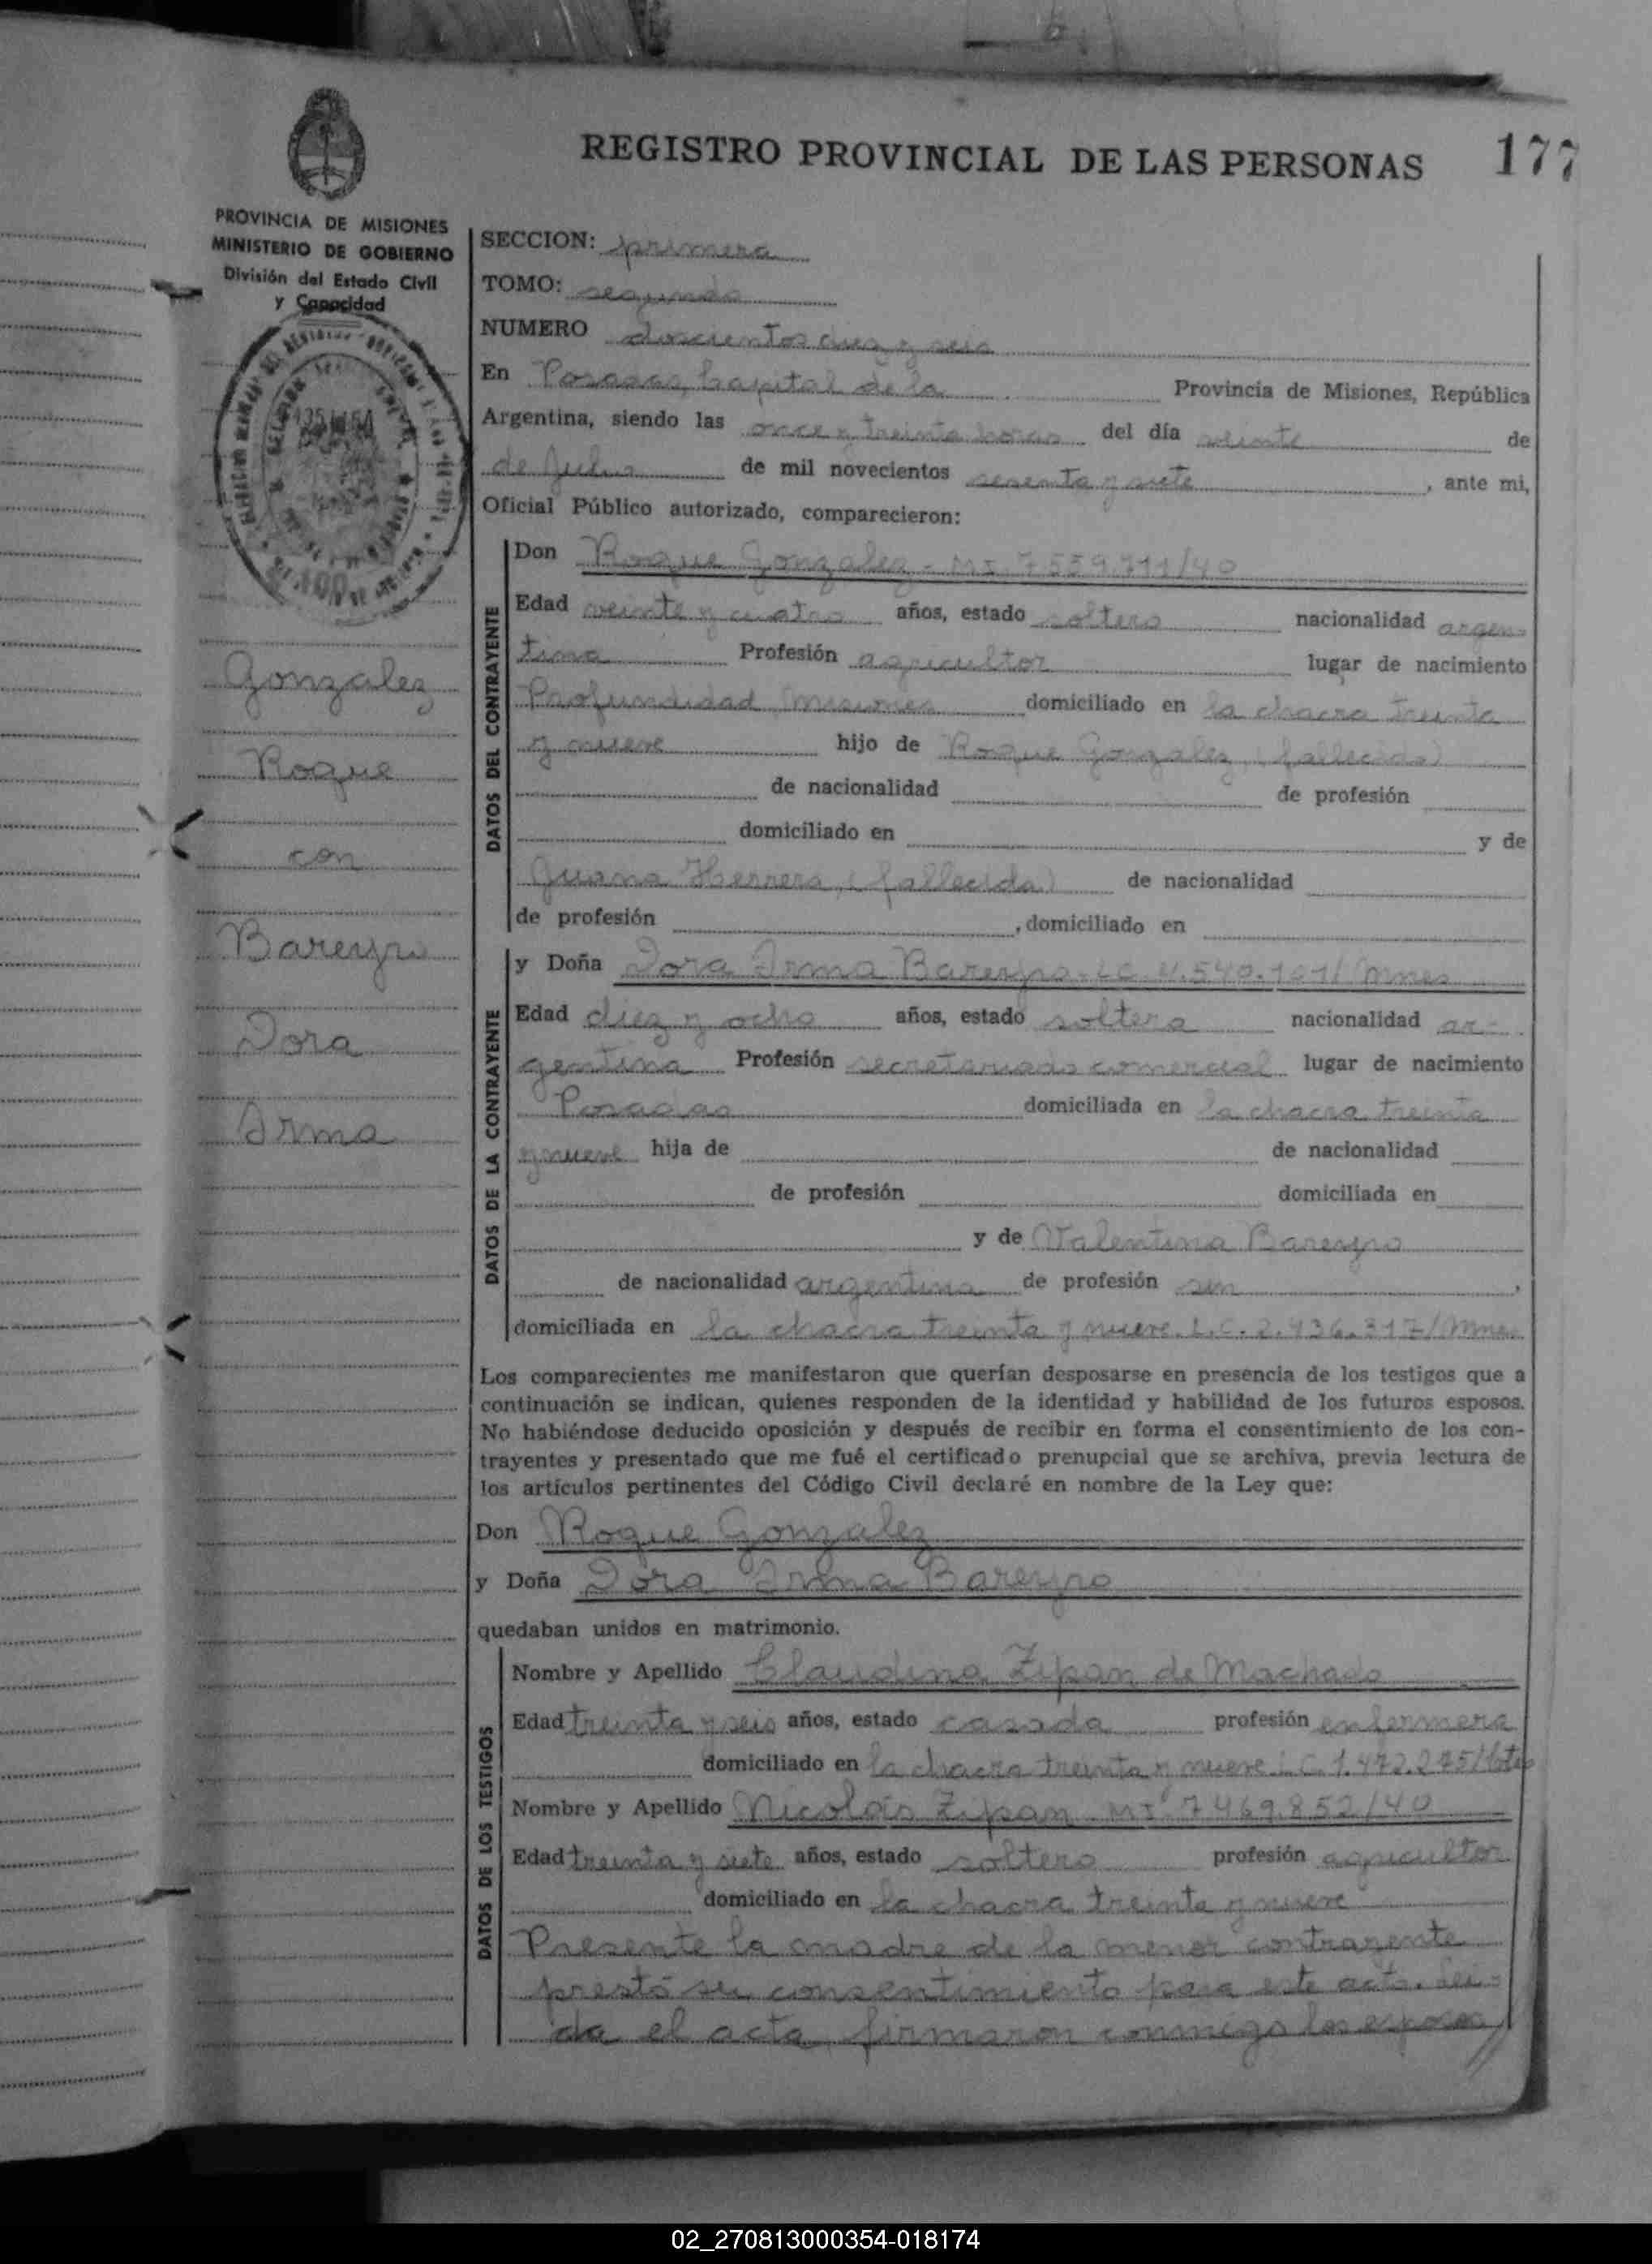 REGISTRO PROVINCIAL DE LAS PERSONAS 177
PROVINCIA DE MISIONES
MINISTERIO DE GOBIERNO
División del Estado Civil
y Capacidad
Gonzalez
Roque
con
Bareyro
Dora
Irma
SECCION: primera
TOMO: segundo
NUMERO doscientos diez y seis
En Posadas, Capital de la Provincia de Misiones, República
Argentina, siendo las once y treinta horas del día veinte de
de Julio de mil novecientos sesenta y siete, ante mi,
Oficial Público autorizado, comparecieron:
DATOS DEL CONTRAYENTE
Don Roque Gonzalez - MI. 7.559.711/40
Edad veinte y cuatro años, estado soltero nacionalidad argen-
tina Profesión agricultor lugar de nacimiento
Profundidad, Misiones domiciliado en la chacra treinta
y nueve hijo de Roque Gonzalez, (fallecido)
de nacionalidad de profesión
domiciliado en y de
Juana Herrera, (fallecida) de nacionalidad
de profesión , domiciliado en
DATOS DE LA CONTRAYENTE
y Doña Dora Irma Bareyro. LC. 4.540.101/Mnes
Edad diez y ocho años, estado soltera nacionalidad ar-
gentina Profesión secretariado comercial lugar de nacimiento
Posadas domiciliada en la chacra treinta
y nueve hija de de nacionalidad
de profesión domiciliada en
y de Valentina Bareyro
de nacionalidad argentina de profesión sin ,
domiciliada en la chacra treinta y nueve. L.C. 2.436.317/Mnes
Los comparecientes me manifestaron que querían desposarse en presencia de los testigos que a
continuación se indican, quienes responden de la identidad y habilidad de los futuros esposos.
No habiéndose deducido oposición y después de recibir en forma el consentimiento de los con-
trayentes y presentado que me fué el certificado prenupcial que se archiva, previa lectura de
los artículos pertinentes del Código Civil declaré en nombre de la Ley que:
Don Roque Gonzalez
y Doña Dora Irma Bareyro
quedaban unidos en matrimonio.
DATOS DE LOS TESTIGOS
Nombre y Apellido Claudina Zipan de Machado
Edad treinta y seis años, estado casada profesión enfermera
domiciliado en la chacra treinta y nueve L.C. 1.472.275/
Nombre y Apellido Nicolás Zipan MI. 7469.852/40
Edad treinta y siete años, estado soltero profesión agricultor
domiciliado en la chacra treinta y nueve
Presente la madre de la menor contrayente
prestó su consentimiento para este acto. Leí-
da el acta, firmaron conmigo los esposos
02_270813000354-018174